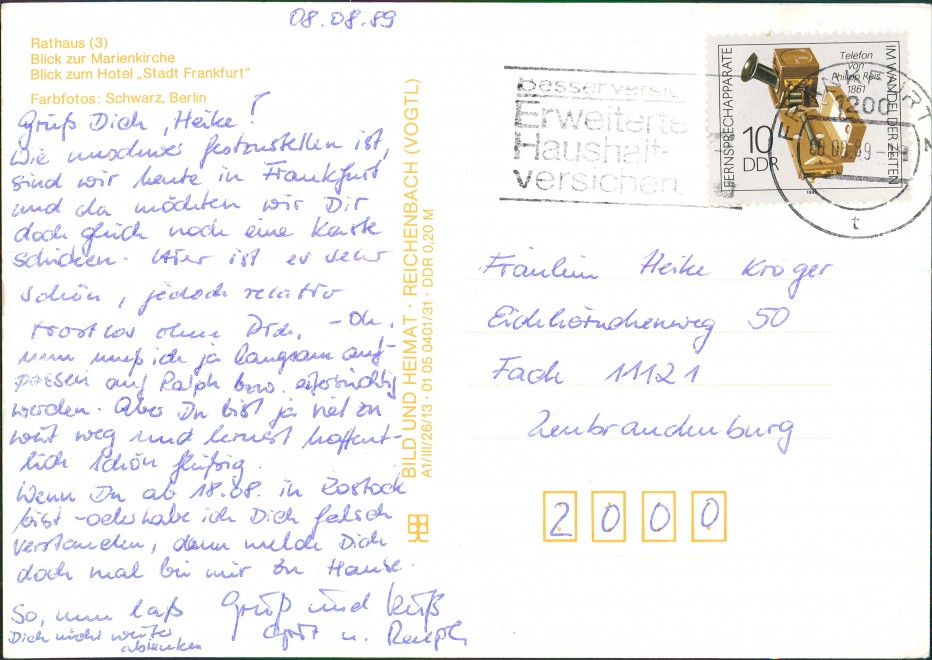 08.08.89
Rathaus (3)
Blick zur Marienkirche
Blick zum Hotel „Stadt Frankfurt"
Farbfotos: Schwarz, Berlin
Grüß Dich, Heike!
Wie unschwer festzustellen ist,
sind wir heute in Frankfurt
und da möchten wir Dir
doch gleich noch eine Karte
schicken. Hier ist es sehr
schön, jedoch relativ
trostlos ohne Dich. - Oh,
nun muß ich ja langsam auf-
passen auf Ralph bzw. eifersüchtig
werden. Aber Du bist ja viel zu
weit weg und lernst hoffent-
lich schön fleißig.
Wenn Du ab 18.08. in Rostock
bist - oder habe ich Dich falsch
verstanden, dann melde Dich
doch mal bei mir zu Hause.
So, nun laß
Dich nicht weiter
ablenken
Gruß und Kuß
u. Ralph
BILD UND HEIMAT · REICHENBACH (VOGTL)
A1/III/26/13 · 01 05 0401/31 · DDR 0,20 M
Besser
Erweiterte
Haushalt-
versicher
FERNSPRECHAPPARATE
IM WANDEL DER ZEITEN
Telefon
von
Philipp Reis
1861
10
DDR
1200
t
Fräulein Heike Kröger
Eichhörnchenweg 50
Fach 11121
Neubrandenburg
2000